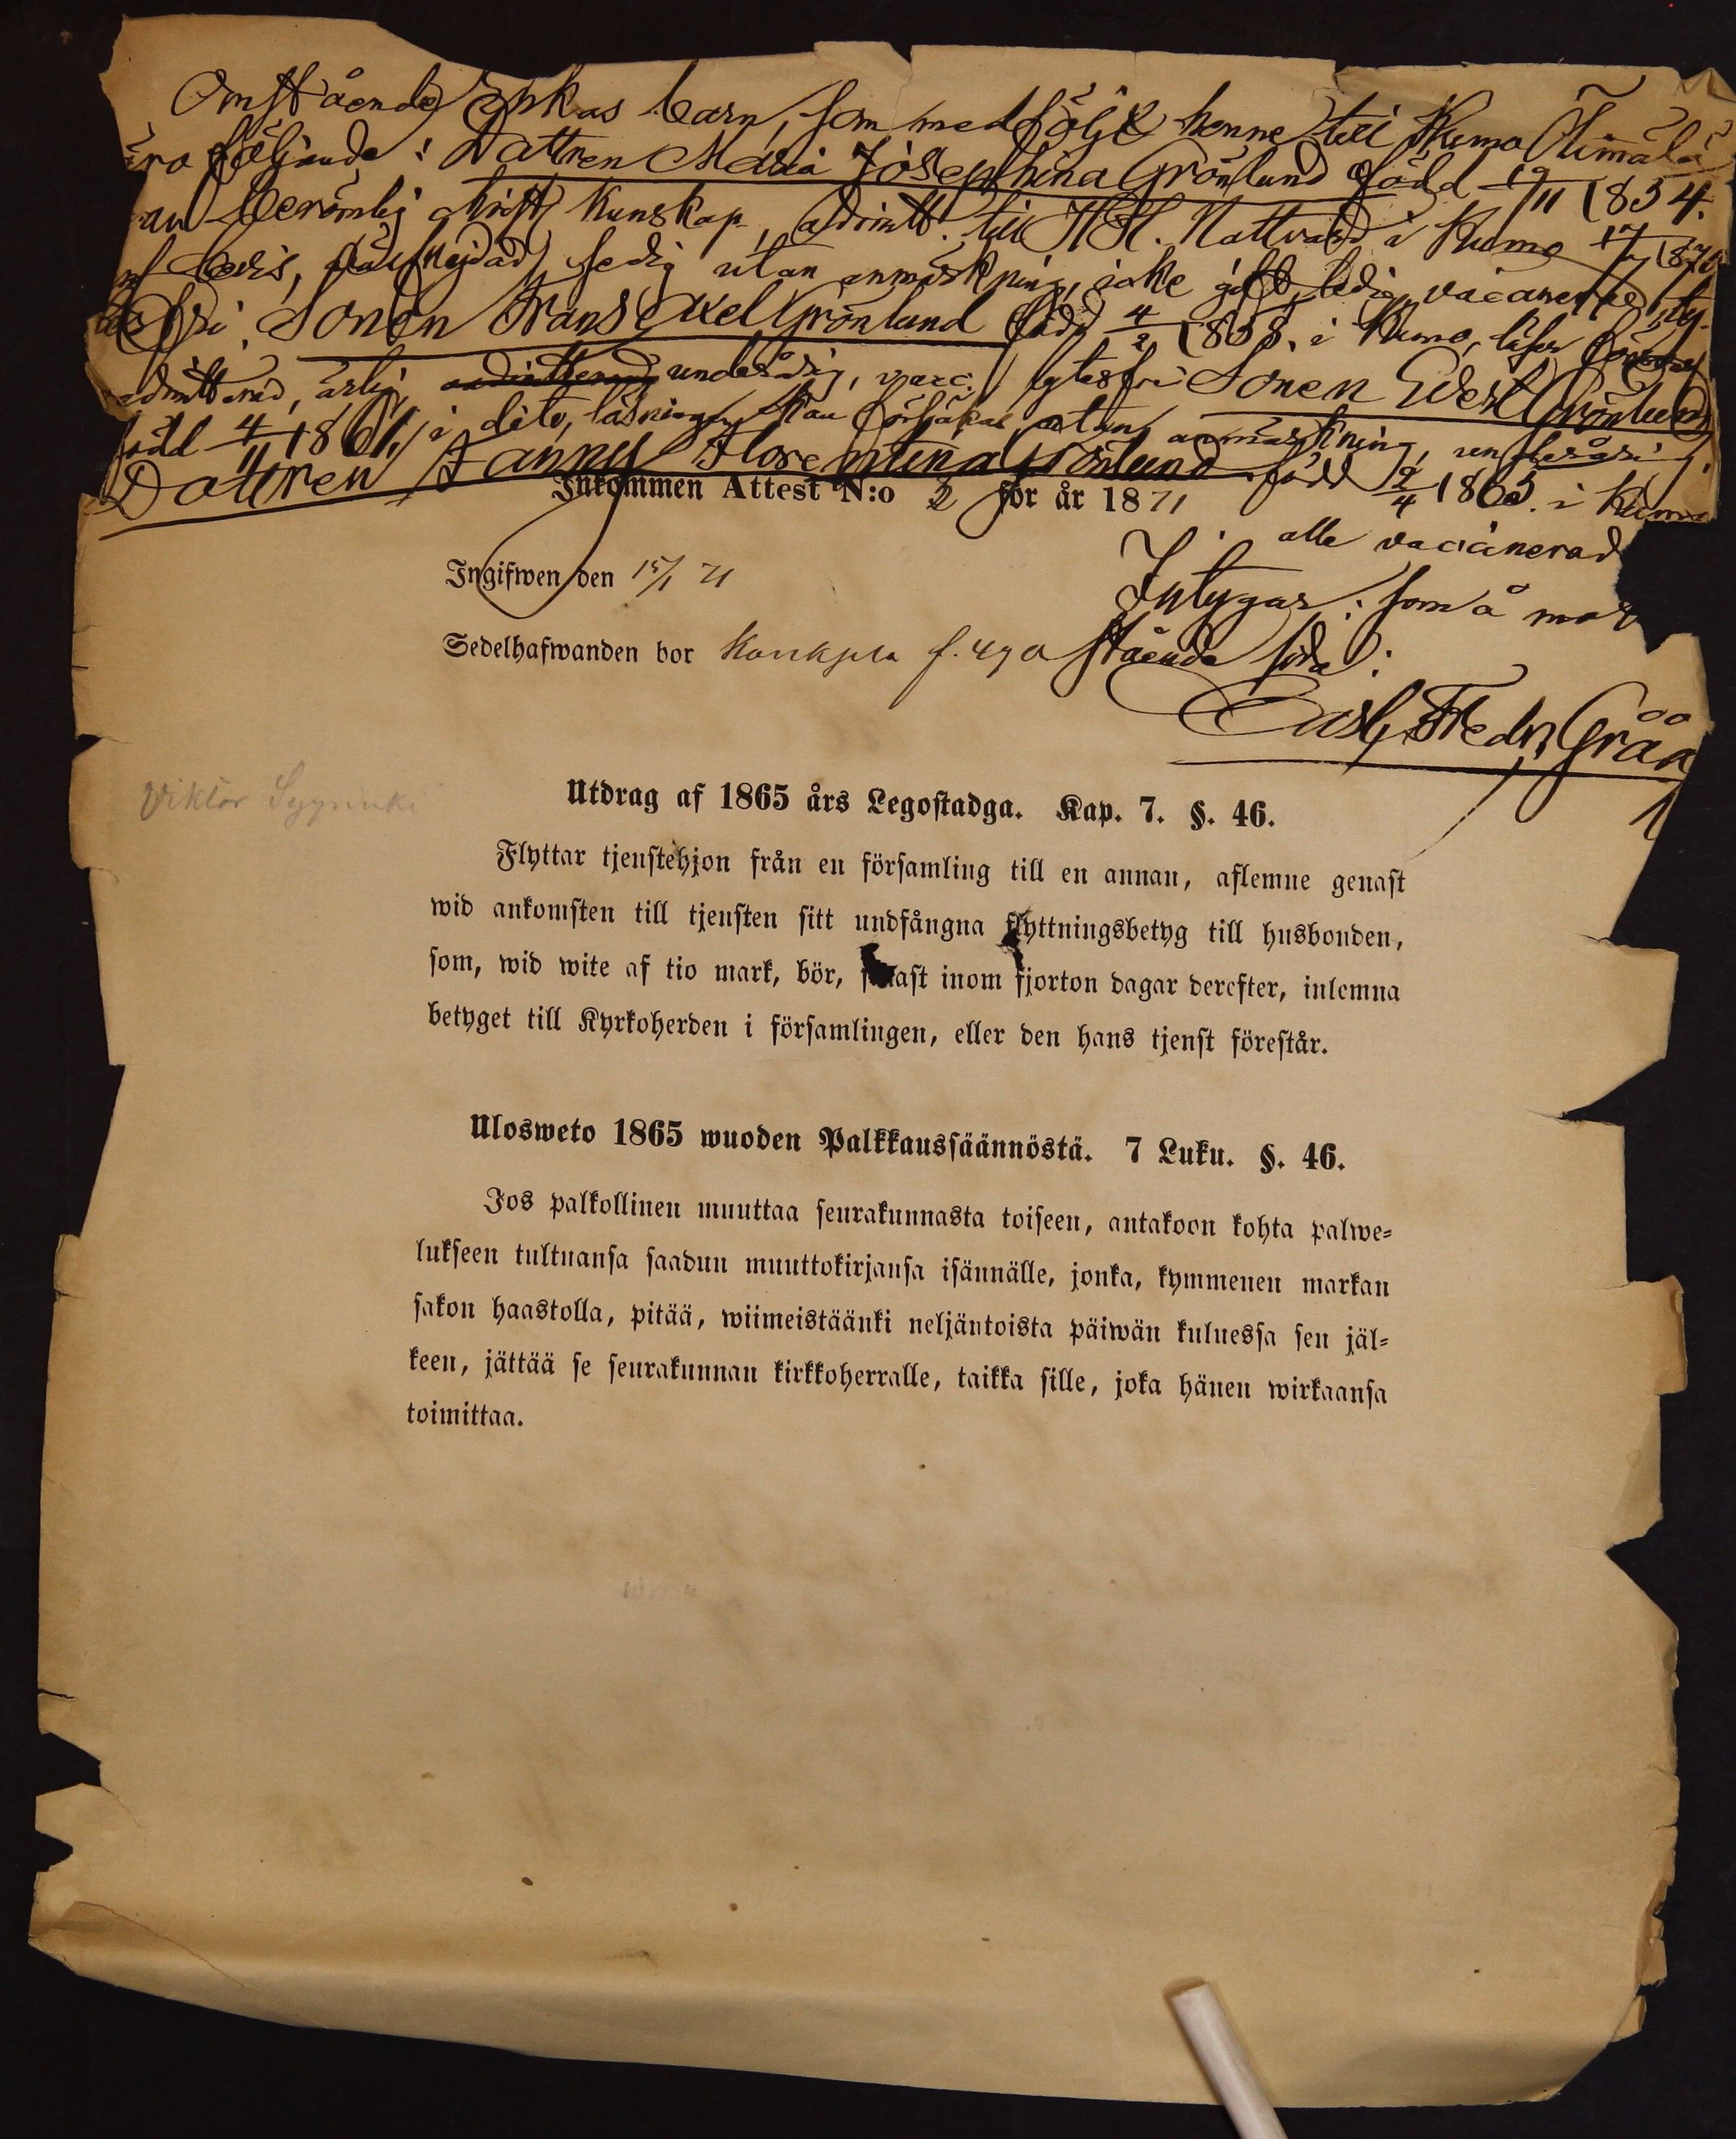 Omstående Enkas barn, som medfölje henne till Kumo
äro följande: Dattren Maria Josephina Grönlund född 19/11 1854.
berömlig christ. kunskap, admitt. till H. H. Nattvard i Kumo 17/7 1870
bevis, sedig utan anmärkning, icke gift, ledig, vaccinerad, ly-
tesfri. Sonen Frans Axel Grönlund född 4/2 1858. i Kumo, läser
admitterad, ärlig, underårig, vacc. lytesfri Sonen Evert Grönlund
född 4/11 1861, i dito, läsningen kan försökas utan anmärkning, underårig.
Dattren Fanny Florentina Grönlund född 2/4 1865. i Kumo
Inkommen Attest N:o 2 för år 1871
alla vaccinerad
Ingifwen den 15/1 71
Intygar: som å mot
Sedelhafwanden bor f. 490
stående sida:
Fredr. Grön
Viktor
Utdrag af 1865 års Legostadga. Kap. 7. §. 46.
Flyttar tjenstehjon från en församling till en annan, aflemne genast
wid ankomsten till tjensten sitt undfångna flyttningsbetyg till husbonden,
som, wid wite af tio mark, bör, senast inom fjorton dagar derefter, inlemna
betyget till Kyrkoherden i församlingen, eller den hans tjenst förestår.
Ulosweto 1865 wuoden Palkkaussäännöstä. 7 Luku. §. 46.
Jos palkollinen muuttaa seurakunnasta toiseen, antakoon kohta palwe=
lukseen tultuansa saadun muuttokirjansa isännälle, jonka, kymmenen markan
sakon haastolla, pitää, wiimeistäänki neljäntoista päiwän kuluessa sen jäl=
keen, jättää se seurakunnan kirkkoherralle, taikka sille, joka hänen wirkaansa
toimittaa.